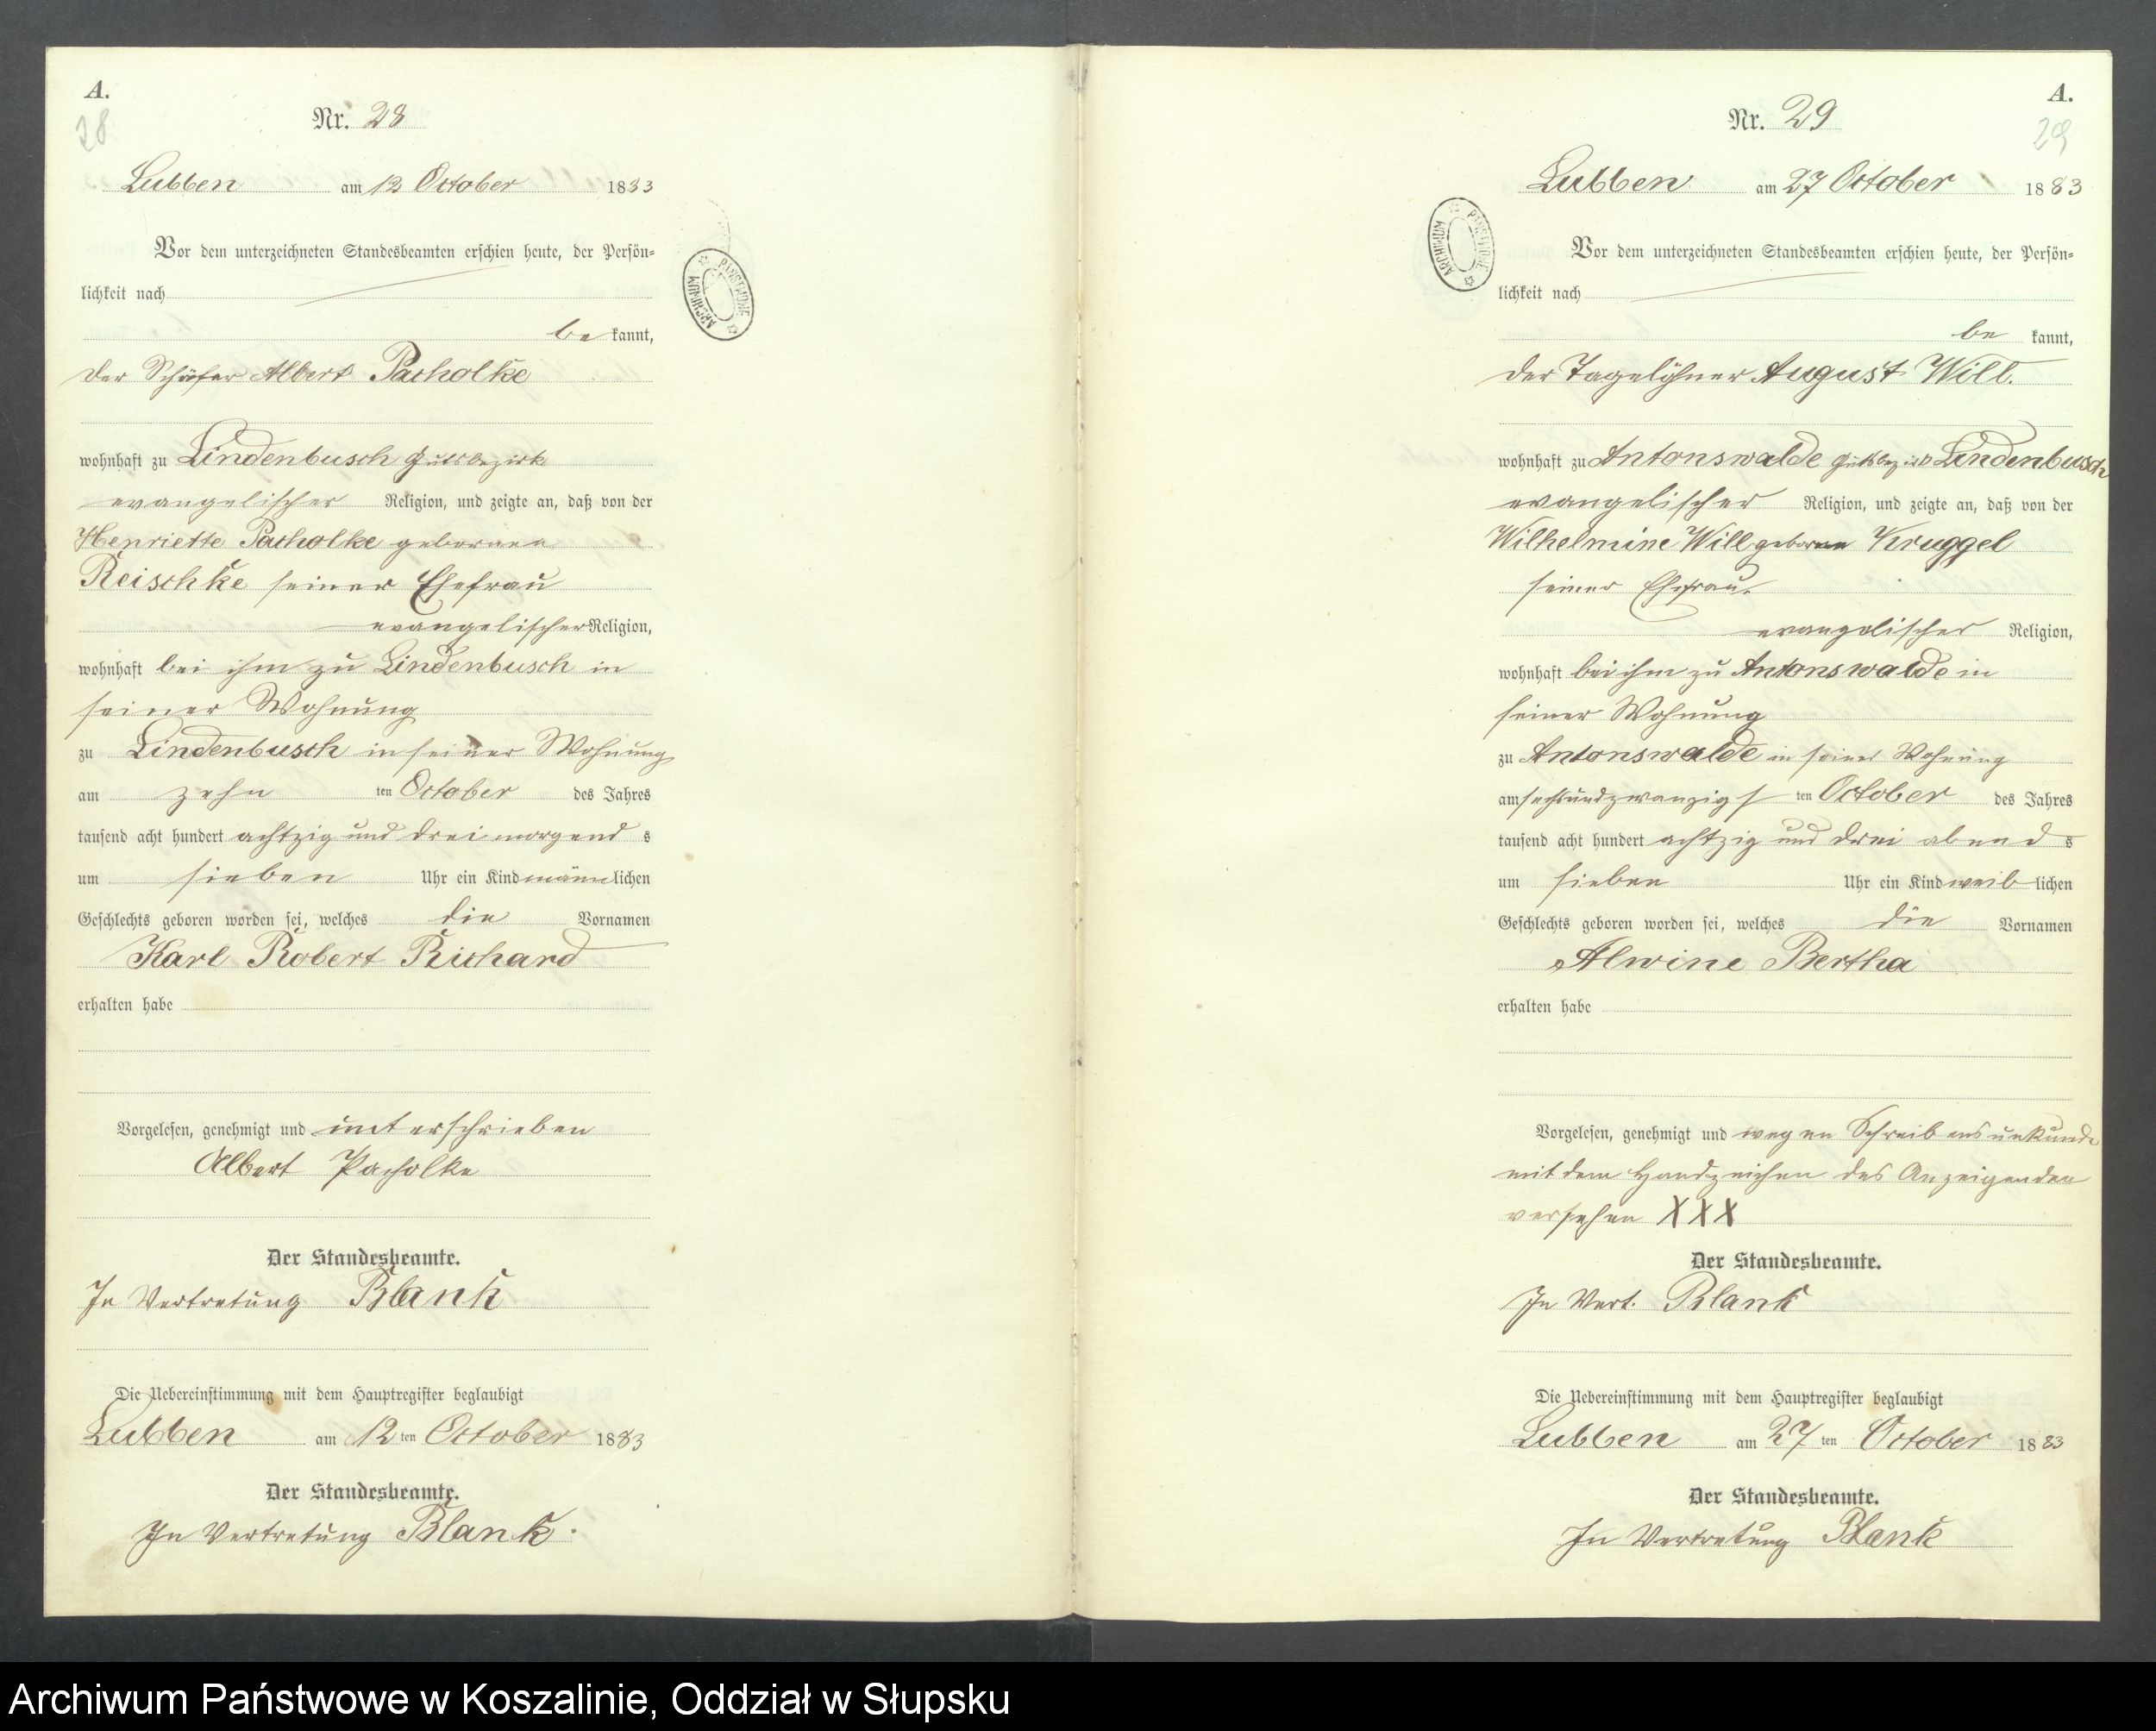 A.
28
Nr. 28
Lubben am 12 October 1883
Vor dem unterzeichneten Standesbeamten erschien heute, der Persön=
lichkeit nach
be kannt,
der Schäfer Albert Pacholke
wohnhaft zu Lindenbusch Gutsbezirk
evangelischer Religion, und zeigte an, daß von der
Henriette Pacholke geborenen
Reischke seiner Ehefrau
evangelischer Religion,
wohnhaft bei ihm zu Lindenbusch in
seiner Wohnung
zu Lindenbusch in seiner Wohnung
am zehn ten October des Jahres
tausend acht hundert achtzig und drei morgend s
um sieben Uhr ein Kind männlichen
Geschlechts geboren worden sei, welches die Vornamen
Karl Robert Richard
erhalten habe
Vorgelesen, genehmigt und unterschrieben
Albert Pacholke
Der Standesbeamte.
In Vertretung Blank
Die Uebereinstimmung mit dem Hauptregister beglaubigt
Lubben am 12 ten October 1883
Der Standesbeamte.
In Vertretung Blank.
ARCHIWUM PAŃSTWOWE
A.
29
Nr. 29
Lubben am 27 October 1883
ARCHIWUM PAŃSTWOWE
Vor dem unterzeichneten Standesbeamten erschien heute, der Persön=
lichkeit nach
be kannt,
der Tagelöhner August Will.
wohnhaft zu Antonswalde Gutsbezirk Lindenbusch
evangelischer Religion, und zeigte an, daß von der
Wilhelmine Will geborne Kruggel
seiner Ehefrau
evangelischer Religion,
wohnhaft bei ihm zu Antonswalde in
seiner Wohnung
zu Antonswalde in seiner Wohnung
am sechsundzwanzigs ten October des Jahres
tausend acht hundert achtzig und drei abend s
um sieben Uhr ein Kind weib lichen
Geschlechts geboren worden sei, welches die Vornamen
Alwine Bertha
erhalten habe
Vorgelesen, genehmigt und wegen Schreibensunkunde
mit dem Handzeichen des Anzeigenden
versehen XXX
Der Standesbeamte.
In Vert. Blank
Die Uebereinstimmung mit dem Hauptregister beglaubigt
Lubben am 27 ten October 1883
Der Standesbeamte.
In Vertretung Blank
Archiwum Państwowe w Koszalinie, Oddział w Słupsku